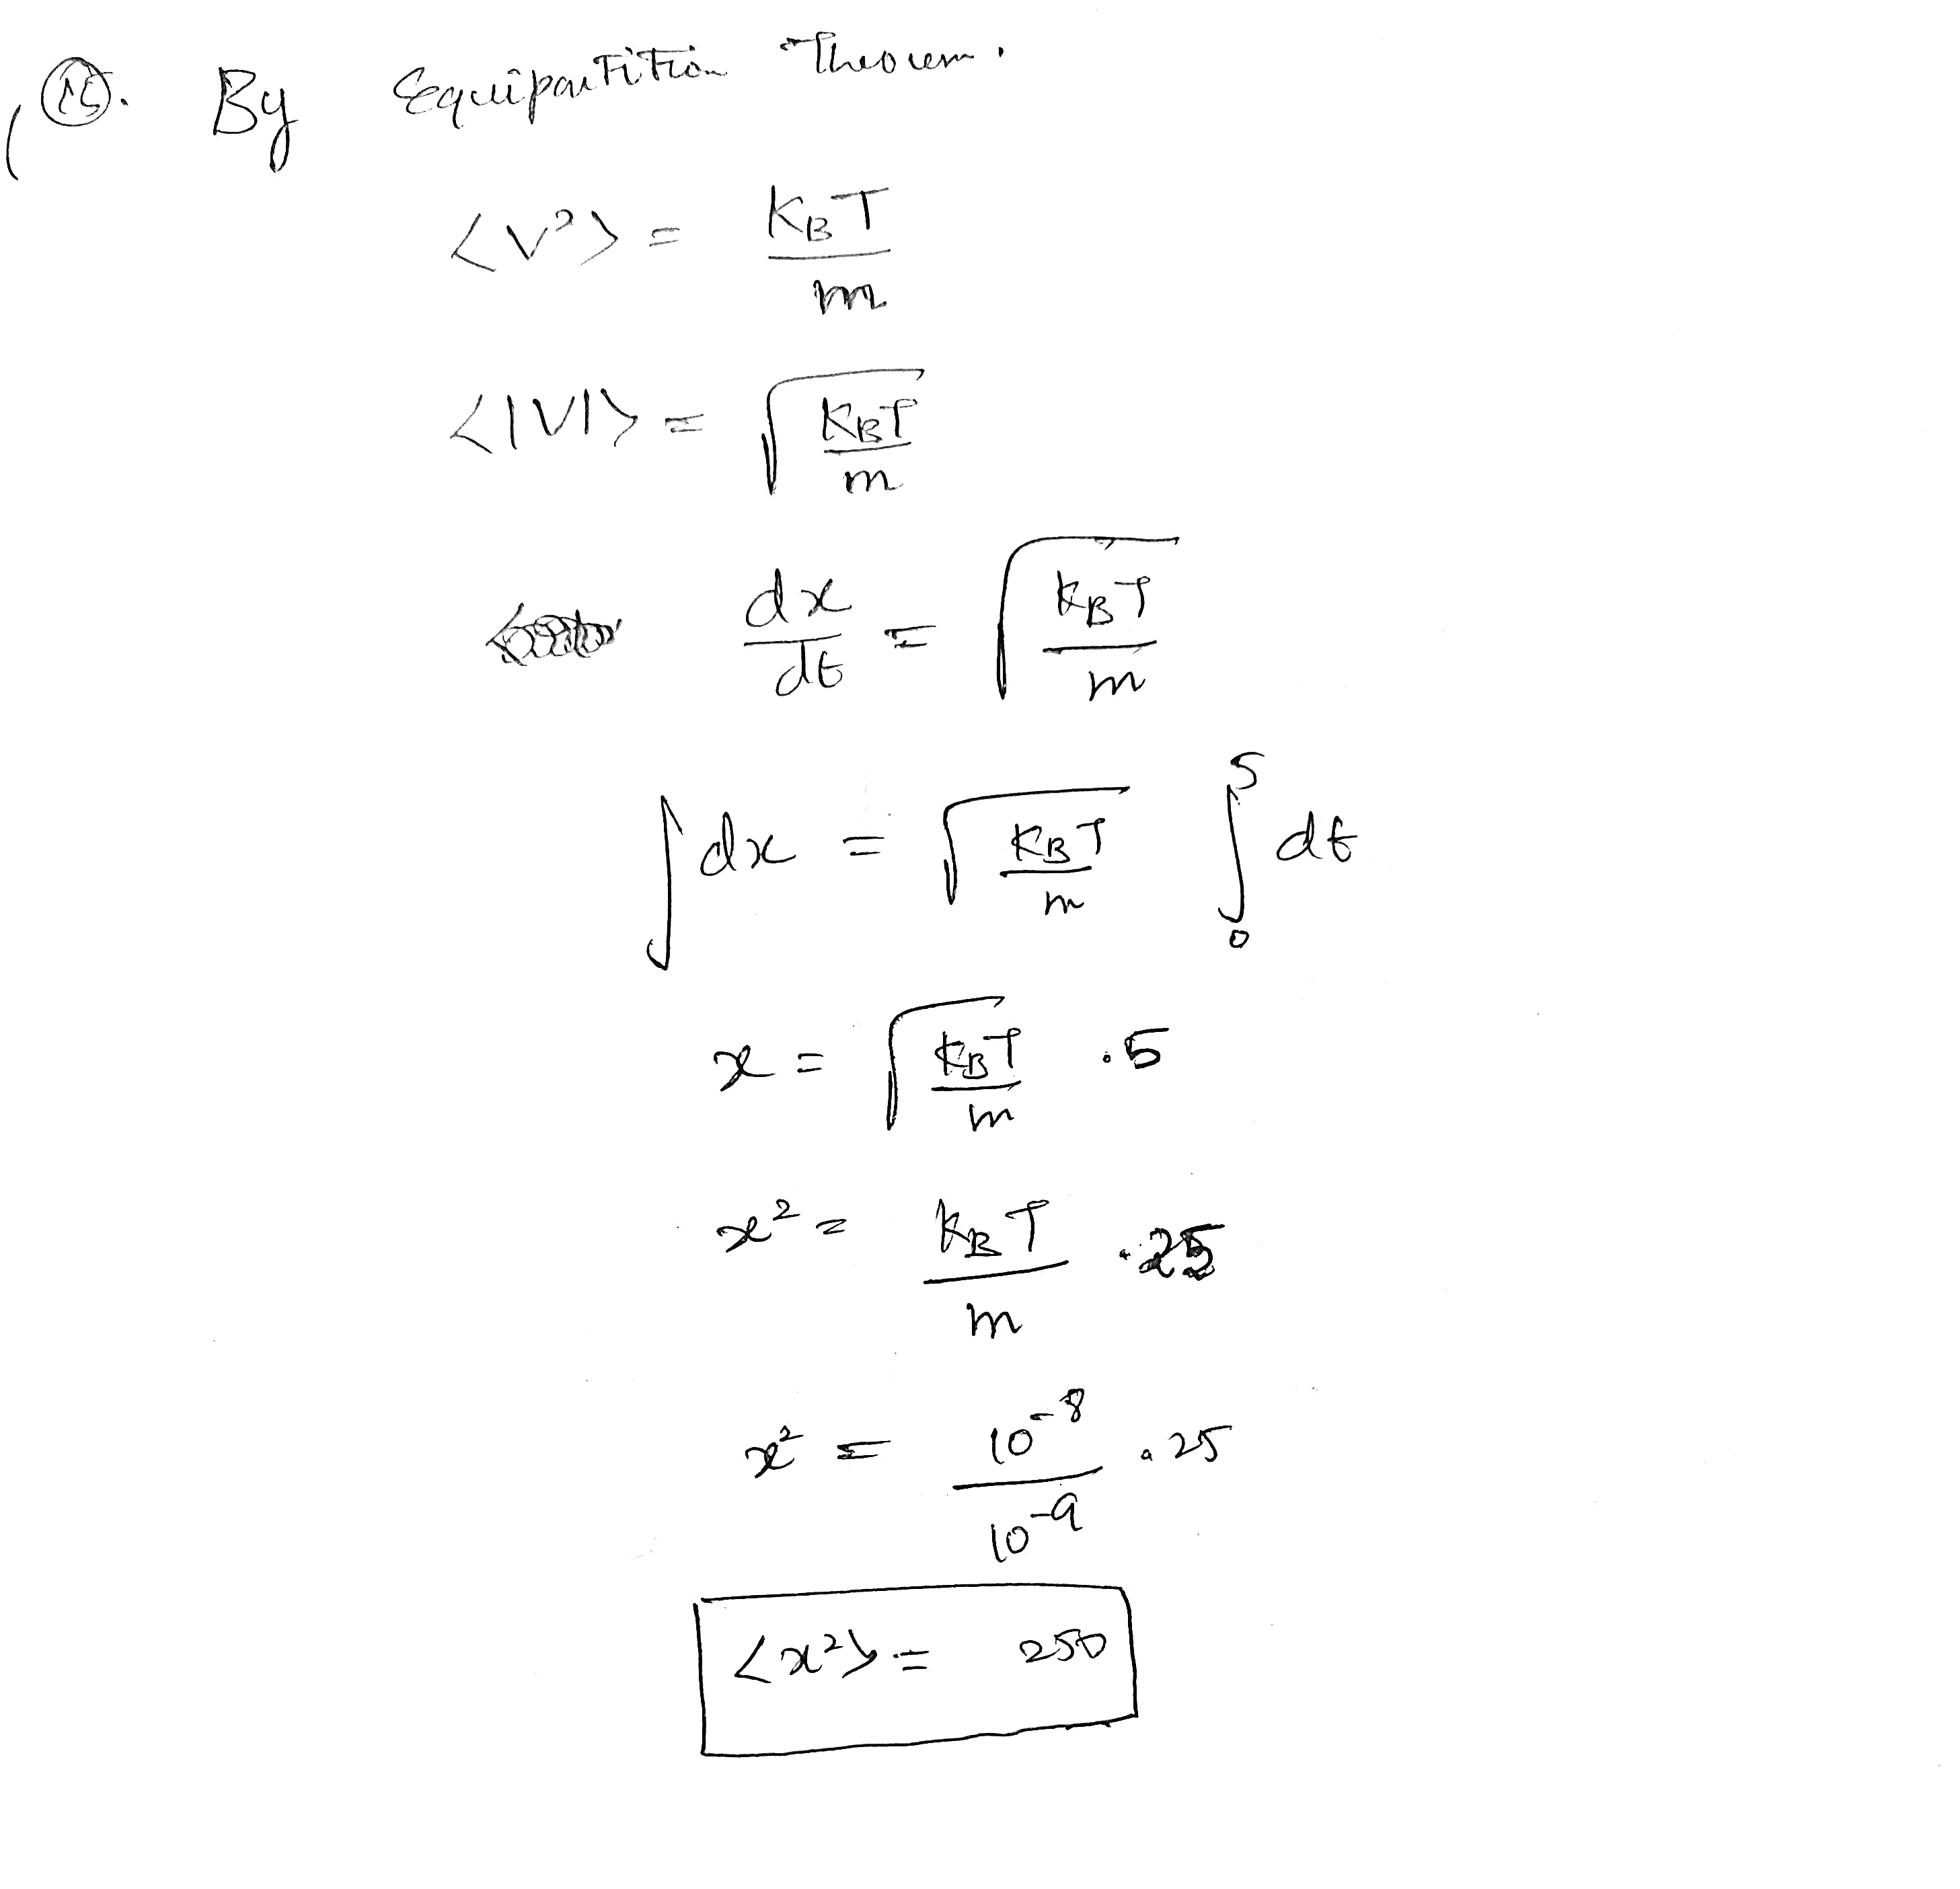 (15). By Equipartition Theorem.
<V²> = K_B T / m
<|V|> = √(K_B T / m)
dx/dt = √(K_B T / m)
∫dx = √(K_B T / m) ∫₀⁵ dt
x = √(K_B T / m) .5
x² = K_B T / m .25
x² = 10⁻⁸ / 10⁻⁹ .25
<x²> = 250